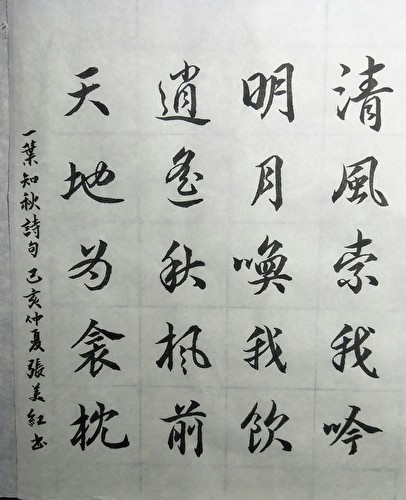 清風索我吟
明月喚我飲
逍遙秋楓前
天地為衾枕
一葉知秋詩句己亥仲夏張美紅书